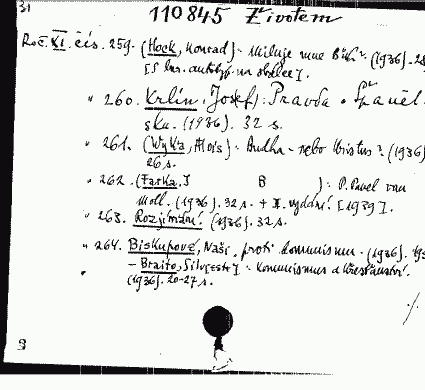 31
110845 Životem
Roč. XI. čís. 259. (Hock, Konrad): Miluje mne Bůh? (1936). 28
[S autotyp. na obálce].
" 260. Krlín, Josef: Pravda o Španěl-
sku. (1936). 32 s.
" 261. (Wyka, Alois): Budha - nebo Kristus? (1936)
26 s.
" 262. (Farka J B ): P. Pavel van
Moll. (1936). 32 s. + II. vydání. [1939].
" 263. Rozjímání. (1936). 32 s.
" 264. Biskupové, Naši, proti komunismu. (1936). 19s
- Braito, Silvestr]: Komunismus a křesťanství.
(1936). 20-27 s.
./.